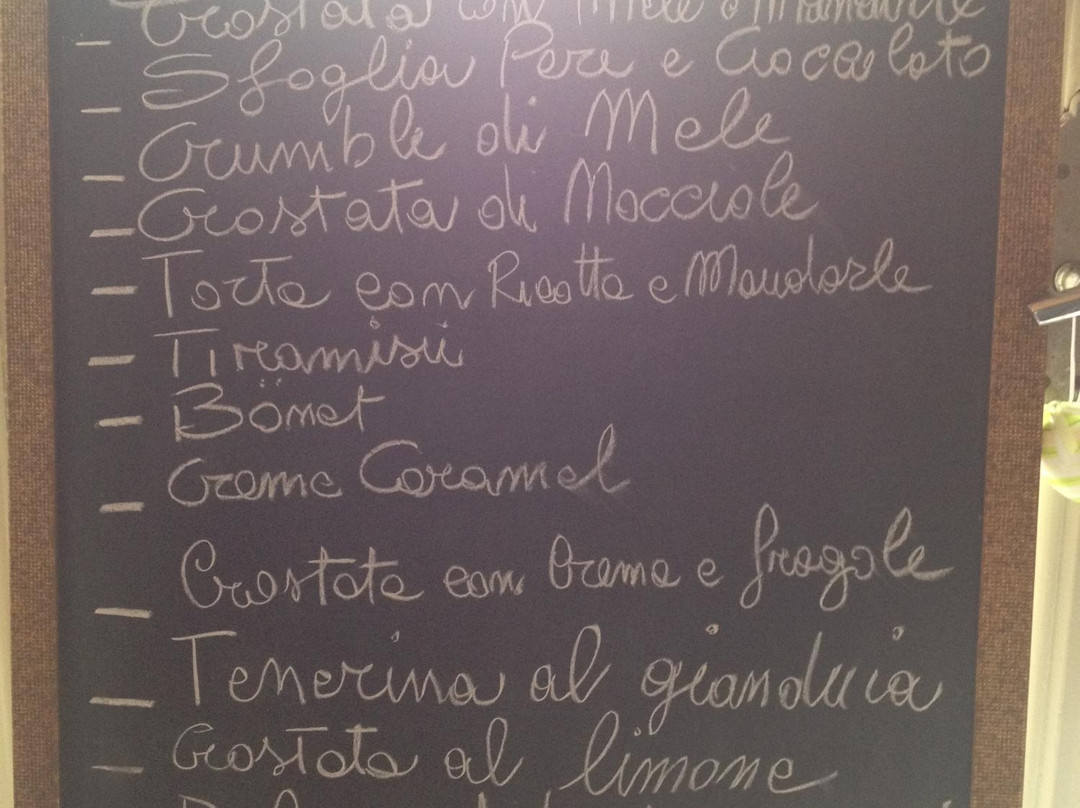 Crostata con Mele e Mandorle
- Sfoglia Pere e Cioccolato
- Crumble di Mele
- Crostata di Nocciole
- Torta con Ricotta e Mandorle
- Tiramisù
- Bönet
- Creme Caramel
- Crostata con Crema e fragole
- Tenerina al gianduia
- Crostata al limone